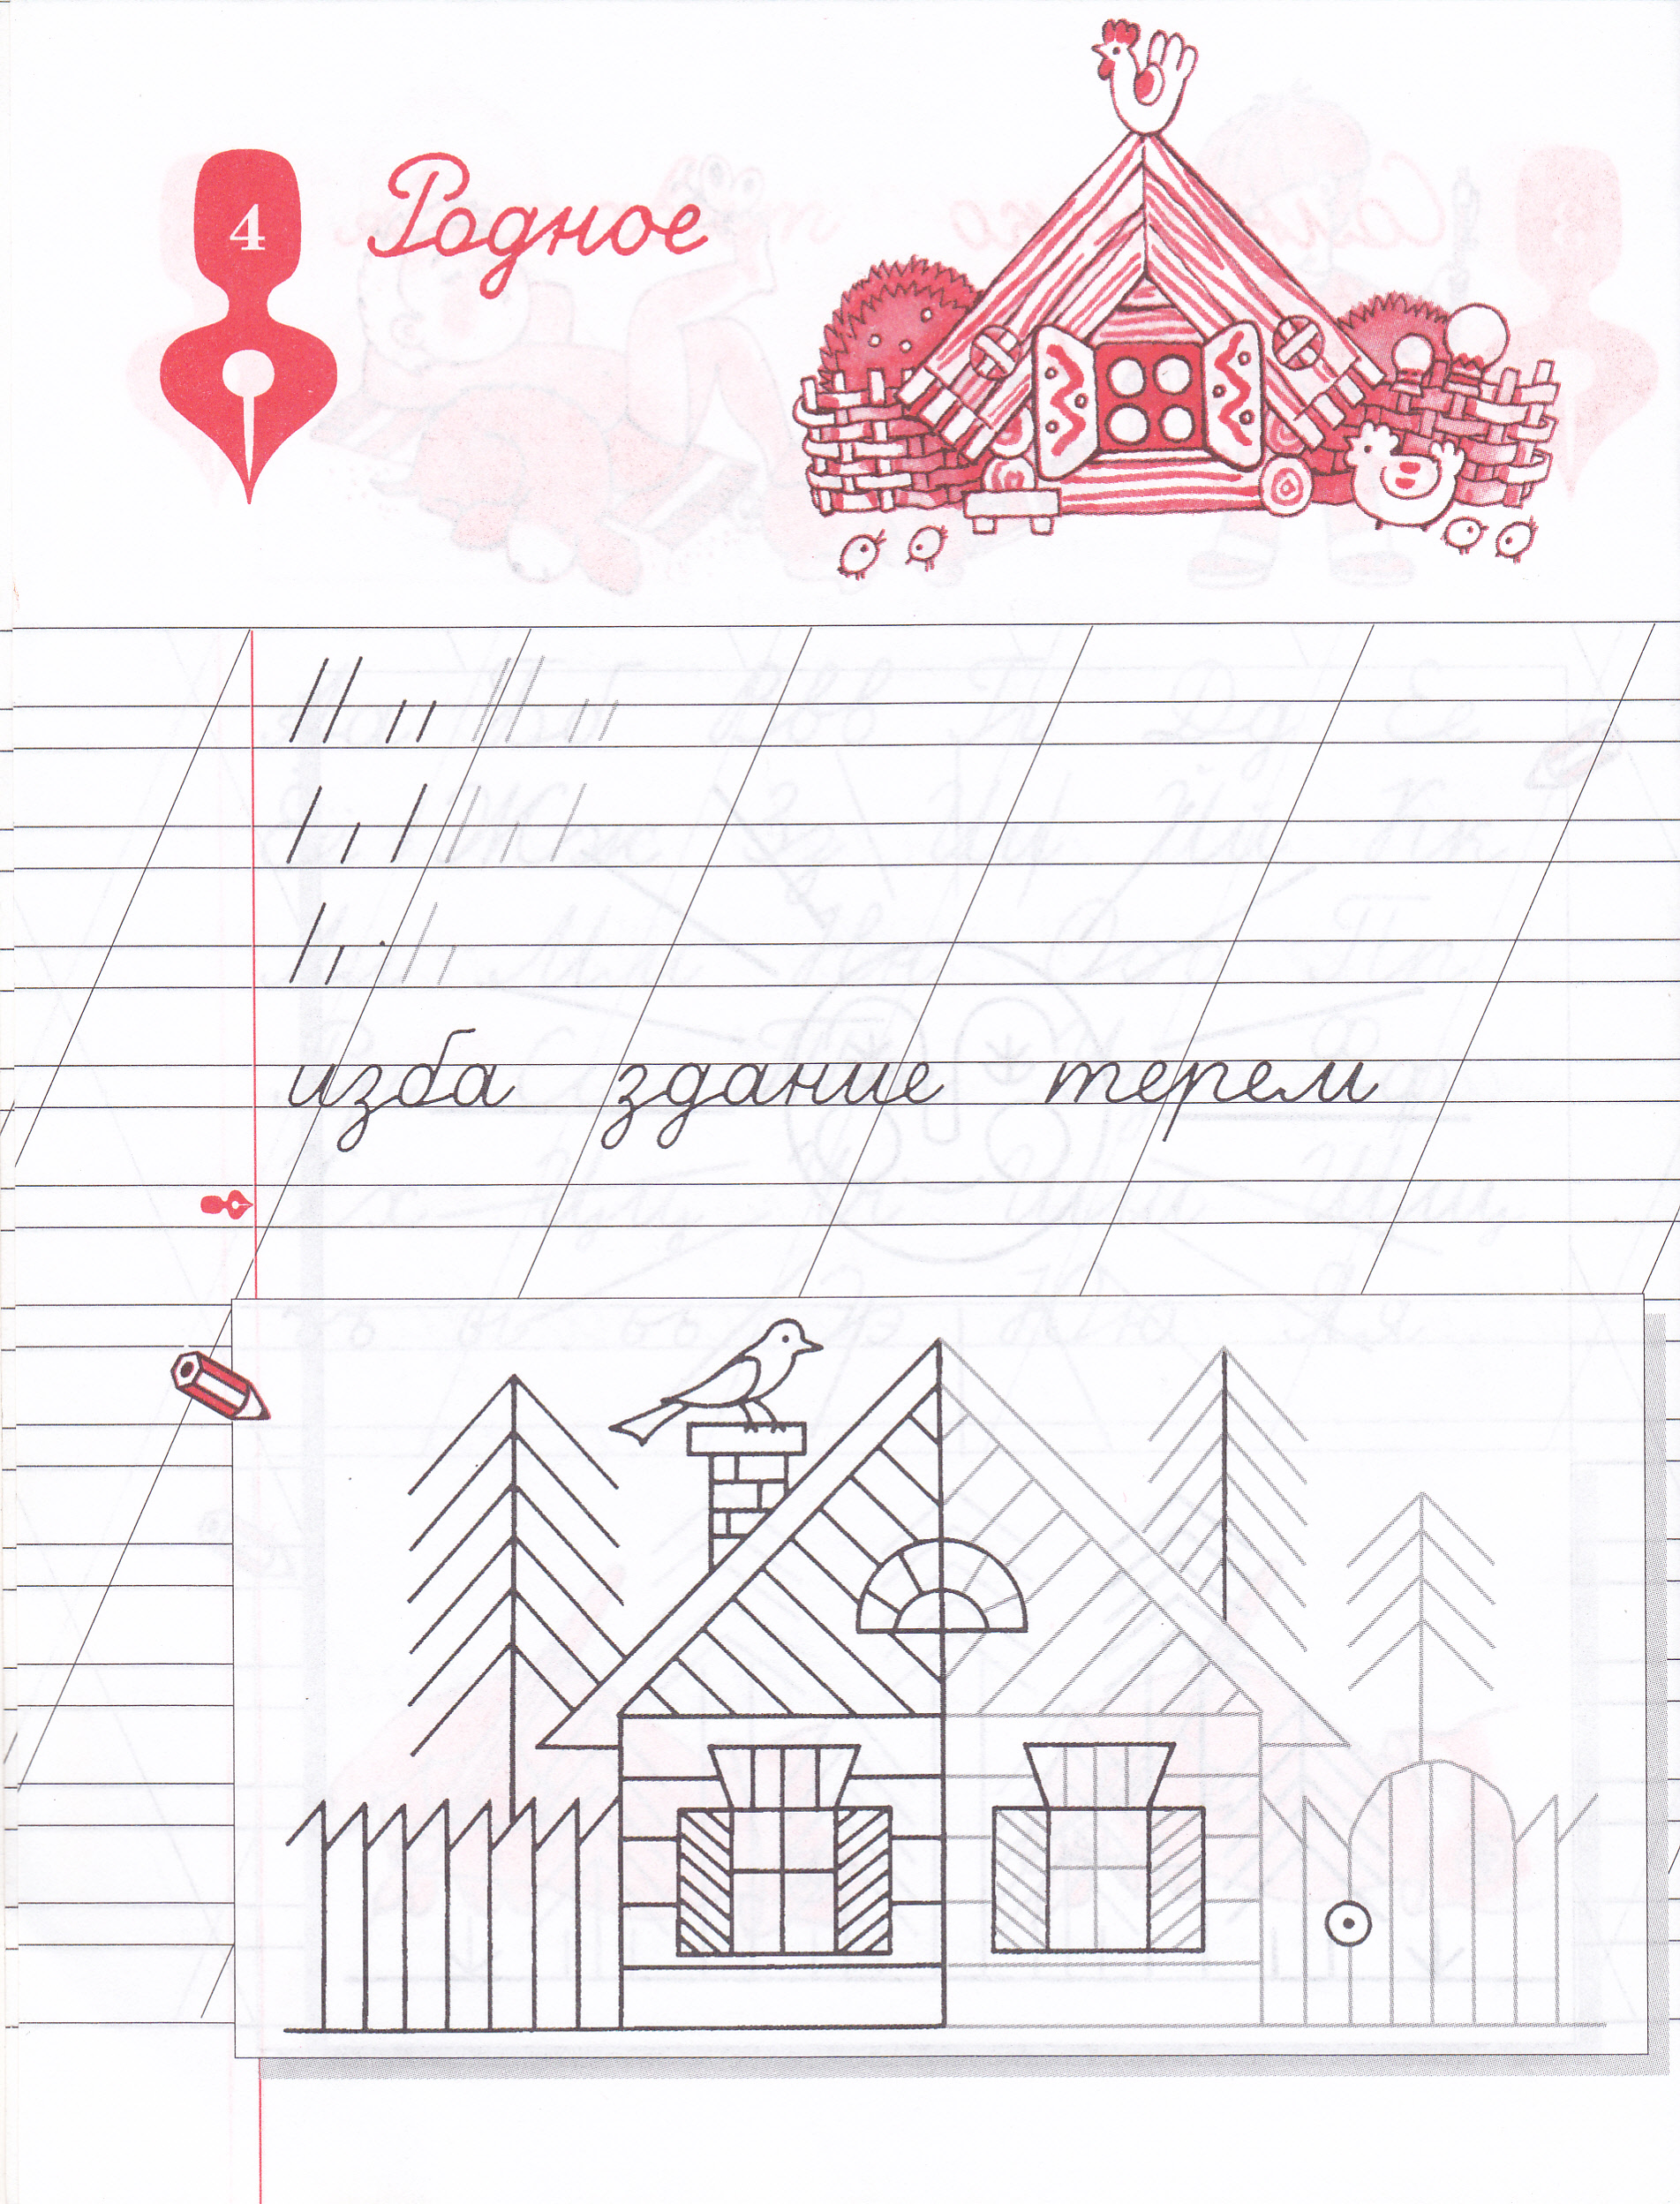 4 Родное
изба здание терем